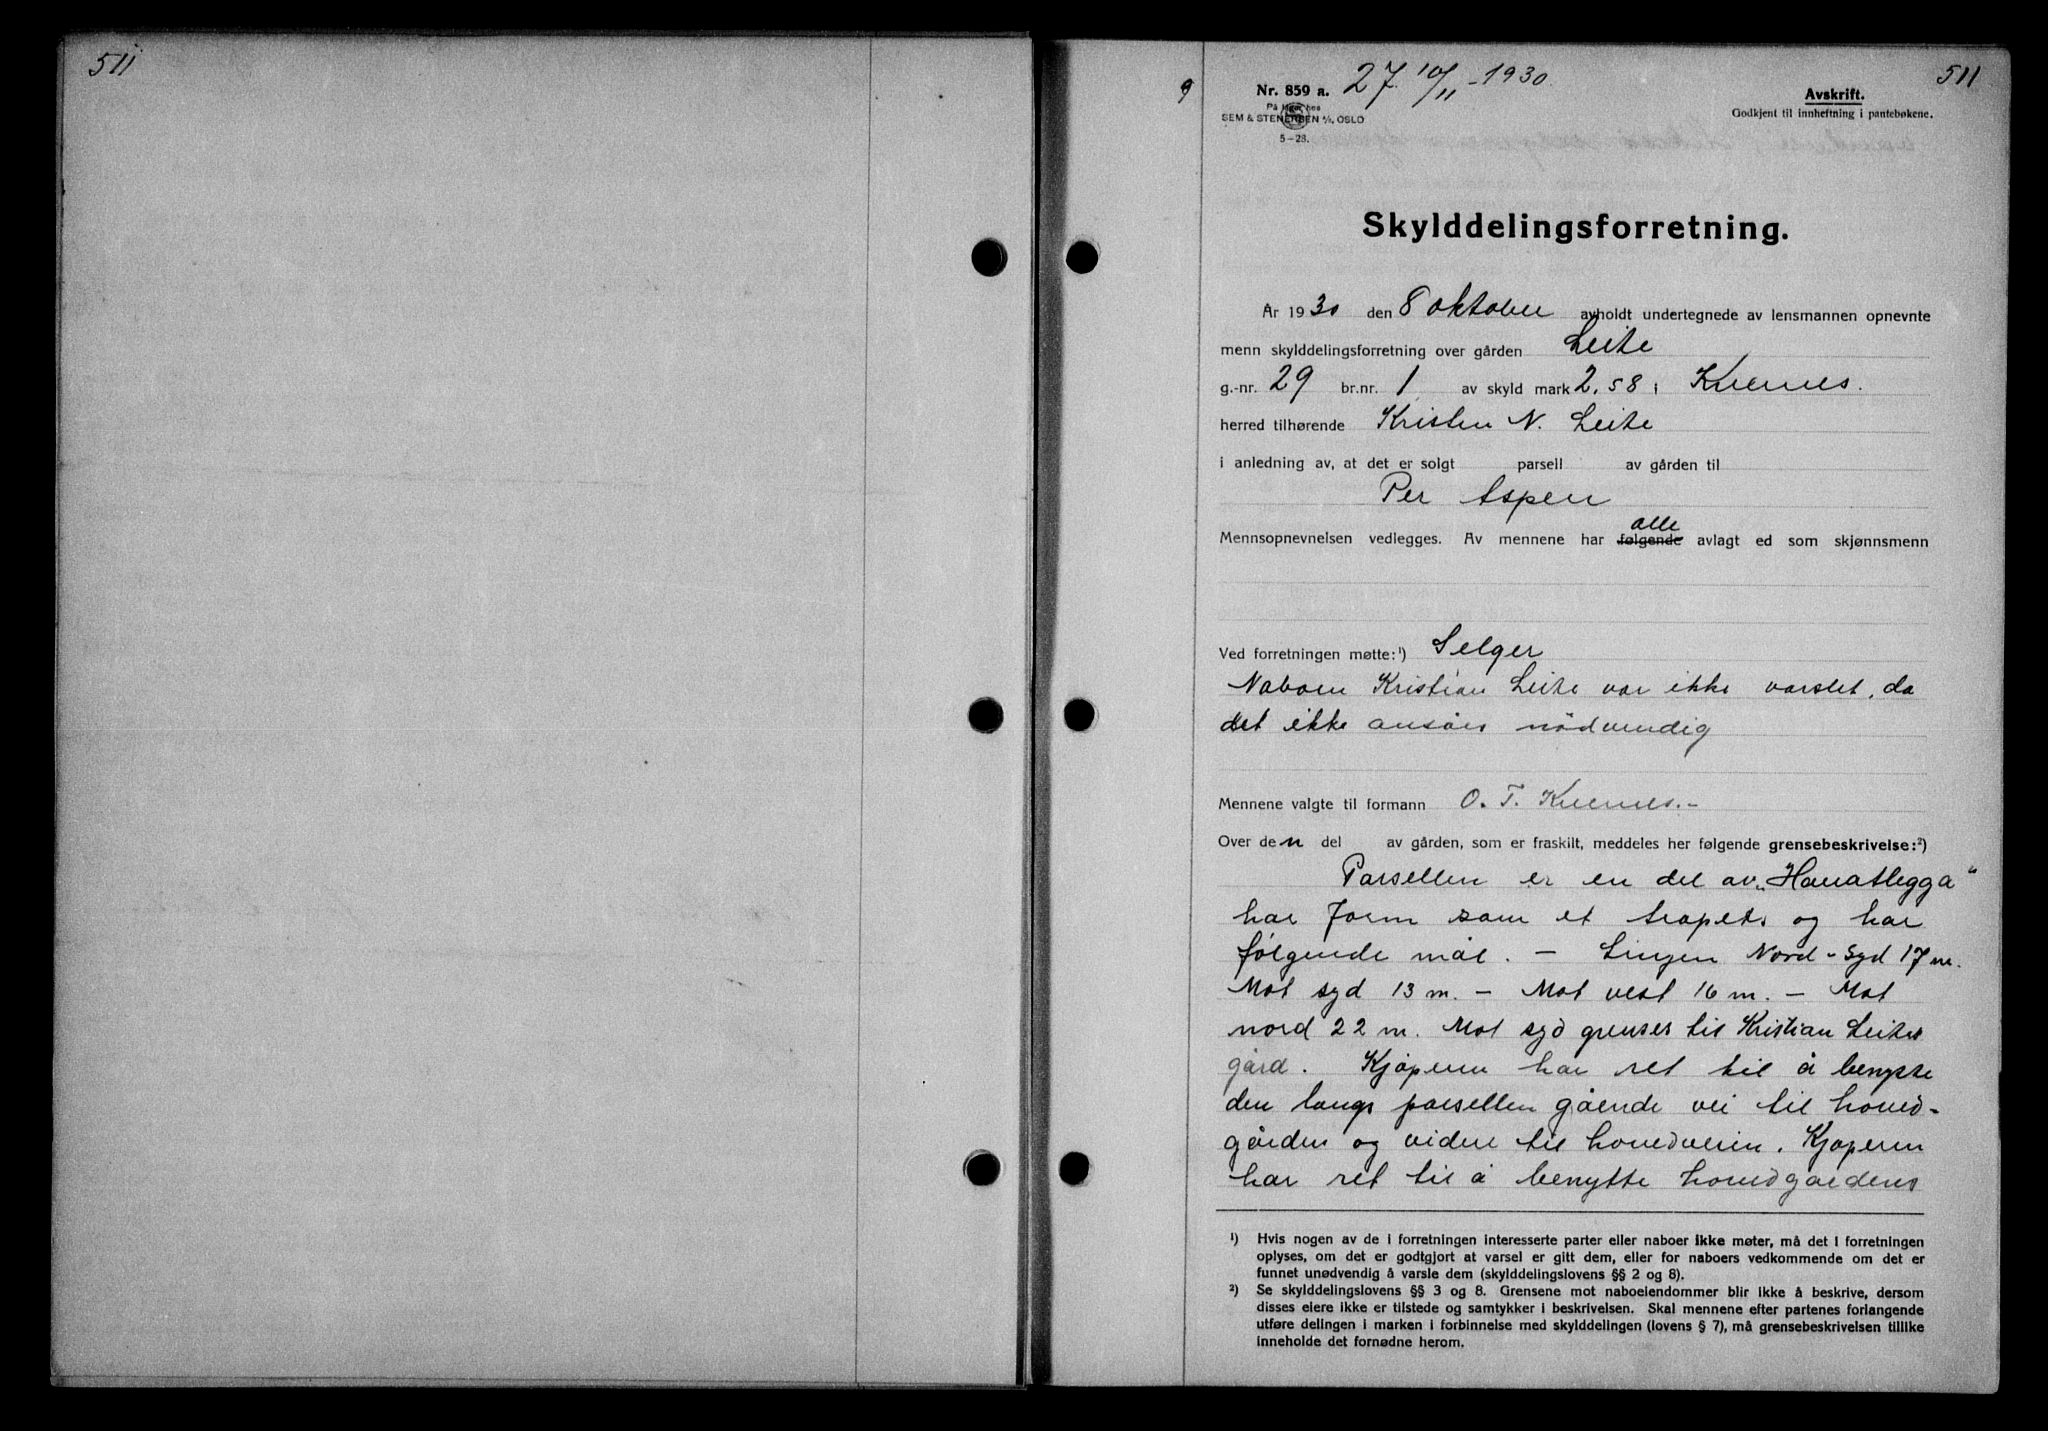 511
9
Nr. 859 a.
27 10/11 - 1930
511
På lager hos
SEM & STENERSEN A/S, OSLO
5-28.
Avskrift.
Godkjent til innheftning i pantebøkene.
Skylddelingsforretning.
År 1930 den 8 oktober avholdt undertegnede av lensmannen opnevnte
menn skylddelingsforretning over gården Leite
g.-nr. 29 br.nr. 1 av skyld mark 2,58 i Kvernes.
herred tilhørende Kristen N. Leite
i anledning av, at det er solgt parsell av gården til
Per Aspen
alle
Mennsopnevnelsen vedlegges. Av mennene har følgende avlagt ed som skjønnsmenn
Ved forretningen møtte:¹) Selger
Naboen Kristian Leite var ikke varslet, da
det ikke ansåes nödvendig
Mennene valgte til formann O. T. Kvernes.-
Over den del av gården, som er fraskilt, meddeles her følgende grensebeskrivelse:²)
Parsellen er en del av „Hanatlegga“
har form som et trapets og har
følgende mål. - Linjen Nord - Syd 17 m.
Mot syd 13 m. - Mot vest 16 m. - Mot
nord 22 m. Mot syd grenser til Kristian Leites
gård. Kjøperen har ret til å benytte
den langs parsellen gående vei til hoved-
gården og videre til hovedveien. Kjøperen
har ret til å benytte hovedgårdens
¹) Hvis nogen av de i forretningen interesserte parter eller naboer ikke møter, må det i forretningen
oplyses, om det er godtgjort at varsel er gitt dem, eller for naboers vedkommende om det er
funnet unødvendig å varsle dem (skylddelingslovens §§ 2 og 8).
²) Se skylddelingslovens §§ 3 og 8. Grensene mot naboeiendommer blir ikke å beskrive, dersom
disses eiere ikke er tilstede og samtykker i beskrivelsen. Skal mennene efter partenes forlangende
utføre delingen i marken i forbinnelse med skylddelingen (lovens § 7), må grensebeskrivelsen tillike
inneholde det fornødne herom.